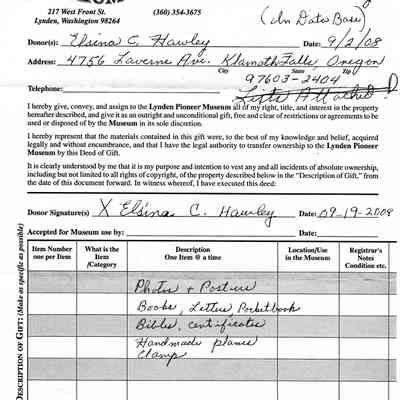 217 West Front St.
Lynden, Washington 98264
(360) 354-3675
(In Data Base)
Donor(s): Elsina C. Hawley Date: 9/2/08
Address: 4756 Laverne Ave. Klamath Falls, Oregon
City State Zip
97603-2404
Telephone: Lists Attached
I hereby give, convey, and assign to the Lynden Pioneer Museum all of my right, title, and interest in the property
hereafter described, and give it as an outright and unconditional gift, free and clear of restrictions or agreements to be
used or disposed of by the Museum in its sole discretion.
I hereby represent that the materials contained in this gift were, to the best of my knowledge and belief, acquired
legally and without encumbrance, and that I have the legal authority to transfer ownership to the Lynden Pioneer
Museum by this Deed of Gift.
It is clearly understood by me that it is my purpose and intention to vest any and all incidents of absolute ownership,
including but not limited to all rights of copyright, of the property described below in the "Description of Gift," from the
date of this document forward. In witness whereof, I have executed this deed:
Donor Signature(s) X Elsina C. Hawley Date: 09-19-2008
Accepted for Museum use by: Date:
DESCRIPTION OF GIFT: (Make as specific as possible)
Item Number
one per Item
What is the
Item
/Category
Description
One Item @ a time
Location/Use
in the Museum
Registrar's
Notes
Condition etc.
Photos + Posters
Books, Letters, Pocketbook
Bibles, certificates
Handmade planes
Clamp